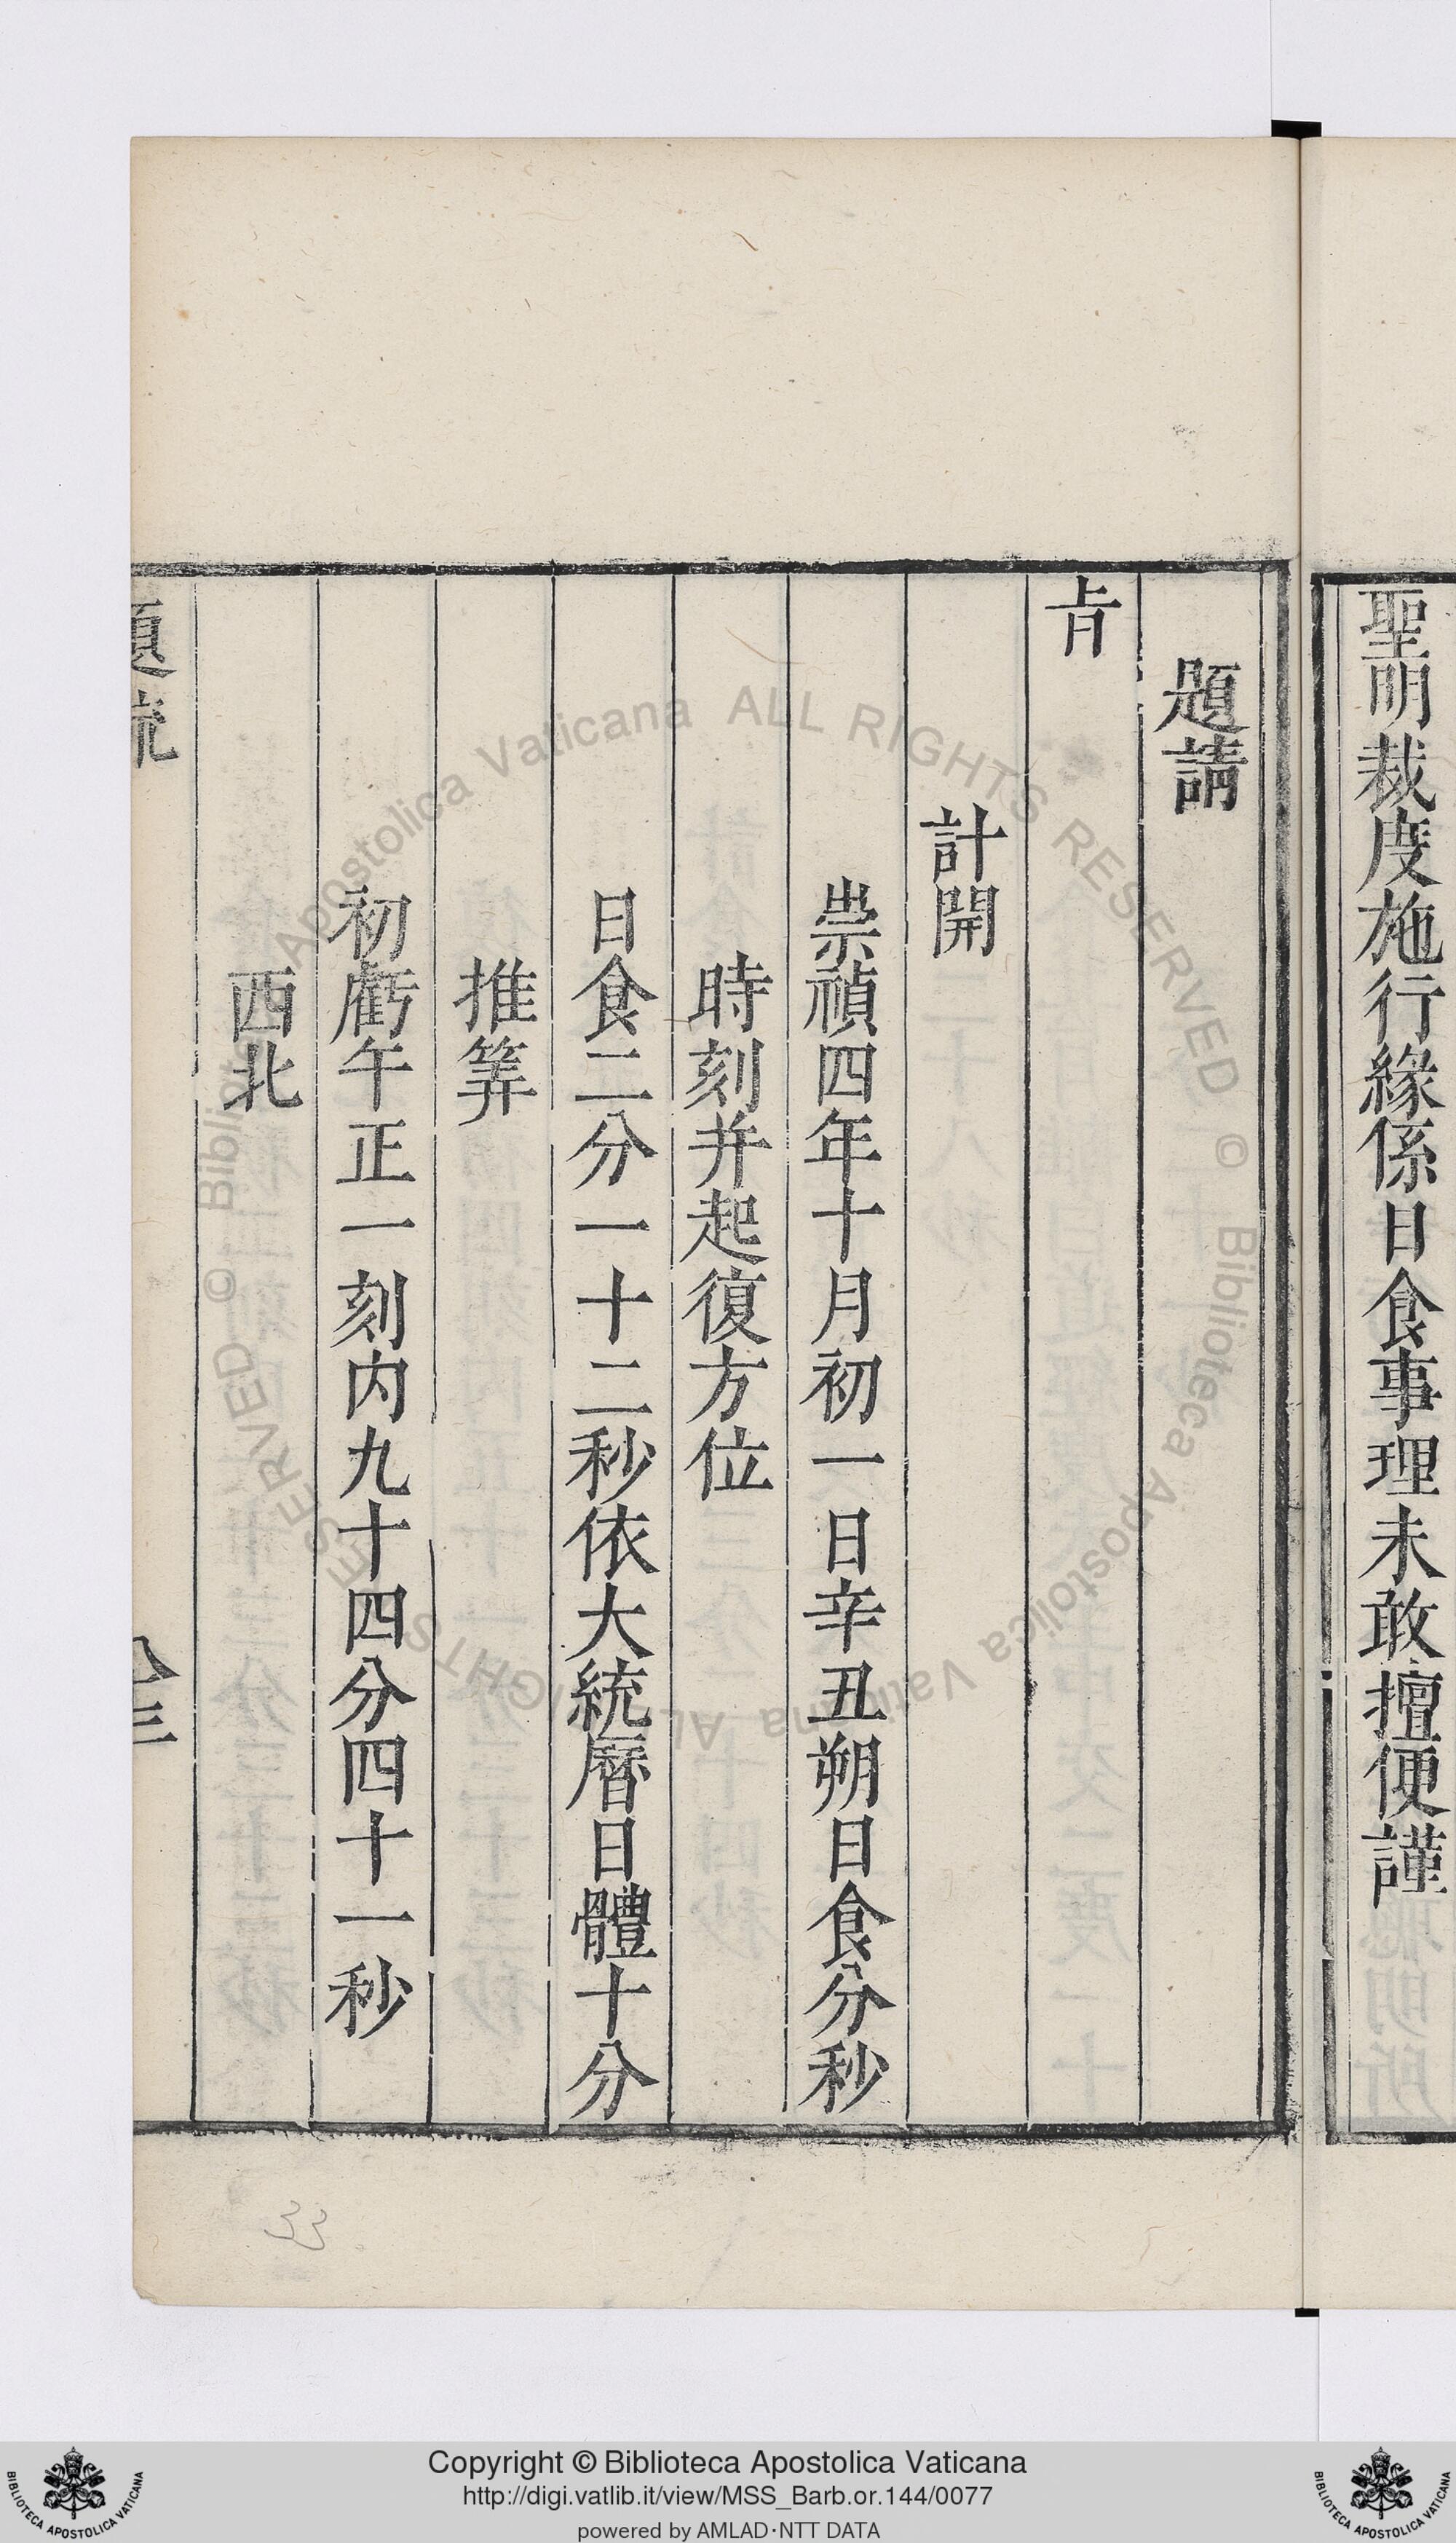 聖明裁度施行緣係日食事理未敢擅便謹
題請
㫖
計開
崇禎四年十月初一日辛丑朔日食分秒
時刻并起復方位
日食二分一十二秒依大統曆日體十分
推筭
初虧午正一刻内九十四分四十一秒
西北
33
Copyright © Biblioteca Apostolica Vaticana
http://digi.vatlib.it/view/MSS_Barb.or.144/0077
powered by AMLAD·NTT DATA
BIBLIOTECA APOSTOLICA VATICANA
BIBLIOTECA APOSTOLICA VATICANA
© Biblioteca Apostolica Vaticana ALL RIGHTS RESERVED © Biblioteca Apostolica Vaticana ALL RIGHTS RESERVED